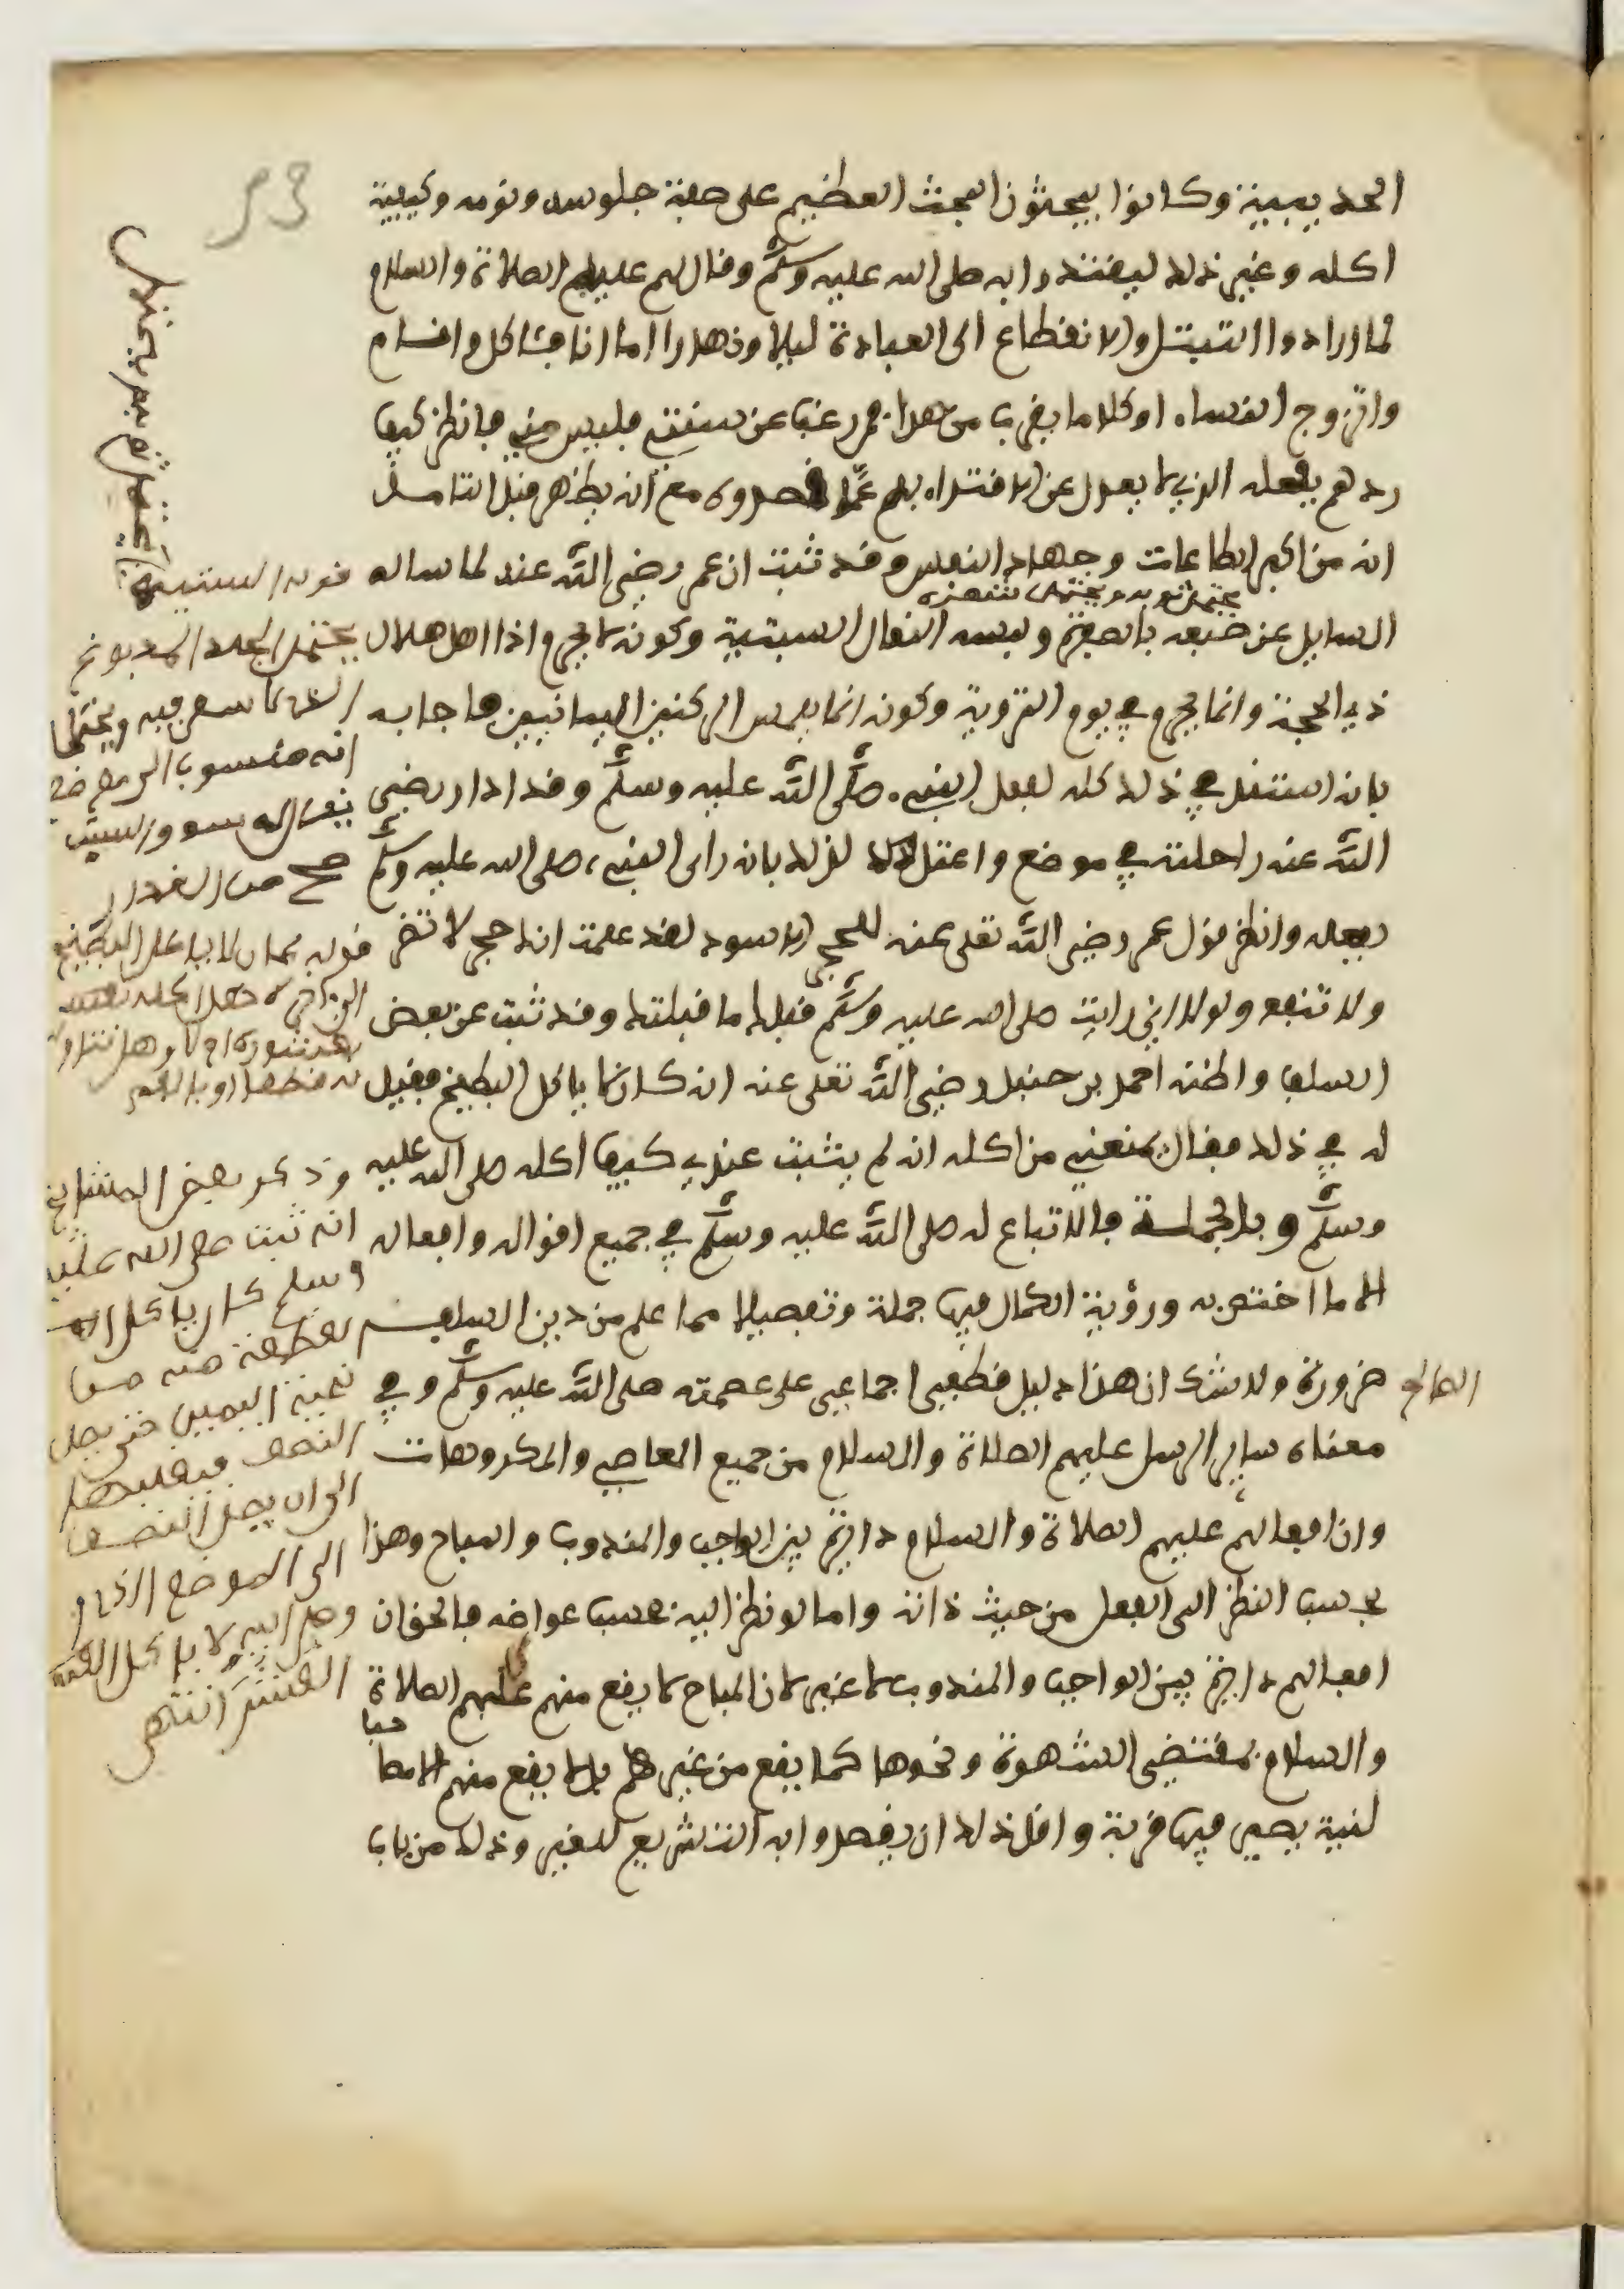 53
الحديبية وكانوا يبحثون البحث العظيم على صفة جلوسه ونومه وكيفية
اكله وغير ذلك ليقتدوا به صلى الله عليه وسلم وقال لهم عليه الصلاة والسلام
لما ارادوا التبتل والانقطاع الى العبادة ليلا ونهارا اما انا فآكل وانام
واتزوج النساء او كلاما يقرب من هذا فمن رغب عن سنتي فليس مني فانظر كيف
ردهم بفعله الذي لا يعدل عن الاقتداء به عما قصدوه مع انه يظهر قبل التامل
انه من اكبر الطاعات وجهاد النفس وقد ثبت ان عمر رضي الله عنه لما ساله
السايل عن صبغه بالصفرة ولبسه النعال السبتية وكونه لا يحرم اذا اهل هلال
ذي الحجة وانما يحرم في يوم التروية وكونه انما يلمس الركنين اليمانيين فاجابه
بانه استند في ذلك كله لفعل النبي صلى الله عليه وسلم وقد ادار رضي
الله عنه راحلته في موضع واعتل لذلك بانه راى النبي صلى الله عليه وسلم
يفعله وانظر قول عمر رضي الله تعلى عنه للحجر الاسود لقد علمت انك حجر لا تضر
ولا تنفع ولولا اني رايت صلى الله عليه وسلم قبلك ما قبلتك وقد ثبت عن بعض
السلف واظنه احمد بن حنبل رضي الله تعلى عنه انه كان لا ياكل البطيخ فقيل
له في ذلك فقال يمنعني من اكله انه لم يثبت عندي كيف اكله صلى الله عليه
وسلم وبالجملة فالاتباع له صلى الله عليه وسلم في جميع اقواله وافعاله
الا ما اختص به ورؤية الكمال فيها جملة وتفصيلا مما علم من دين السلف
الصالح ضرورة ولا شك ان هذا دليل قطعي اجماعي على عصمته صلى الله عليه وسلم وفي
معناه ساير الرسل عليهم الصلاة والسلام من جميع المعاصي والمكروهات
وان افعالهم عليهم الصلاة والسلام دايرة بين الواجب والمندوب والمباح وهذا
بحسب النظر الى الفعل من حيث ذاته واما لو نظر اليه بحسب عوارضه فالحق ان
افعالهم دايرة بين الواجب والمندوب لا غير لان المباح لا يقع منهم عليهم الصلاة
والسلام بمقتضى الشهوة ونحوها كما يقع من غيرهم بل لا يقع منهم الا مصاحبا
لنية يصير فيها قربة واقل ذلك ان يقصدوا به التشريع للغير وذلك من باب
قوله السبتية
يحتمل الجلد المدبوغ
الذي لا شعر فيه ويحتمل
انه منسوب الى موضع
صح من
قوله كان لا ياكل البطيخ
وذكر بعض المشايخ
انه ثبت صلى الله عليه
وسلم كان ياكل
لقطعة منه من
جهة اليمين حتى يصل
النصف فيقلبها
الى ان يصل النصف
الى الموضع الذي
وصل اليه لا ياكل
القشر انتهى